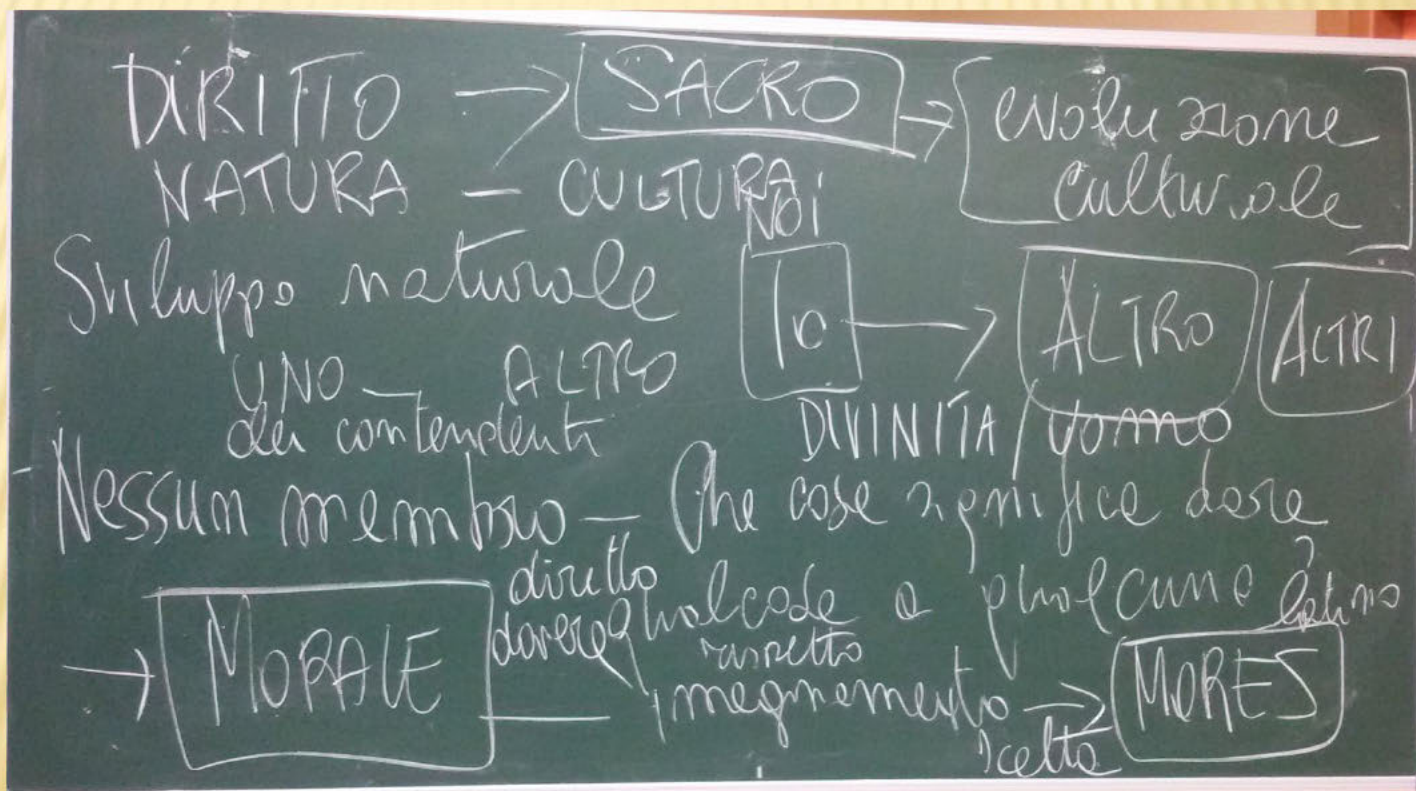 DIRITTO → SACRO → evoluzione
culturale
NATURA — CULTURA
NOI
Sviluppo naturale
Io → ALTRO ALTRI
UNO — ALTRO
dei contendenti
DIVINITA / UOMO
Nessun membro — Che cosa significa dare
qualcosa a qualcuno ?
diritto
dovere
rispetto
latino
→ MORALE — insegnamento → MORES
scelta